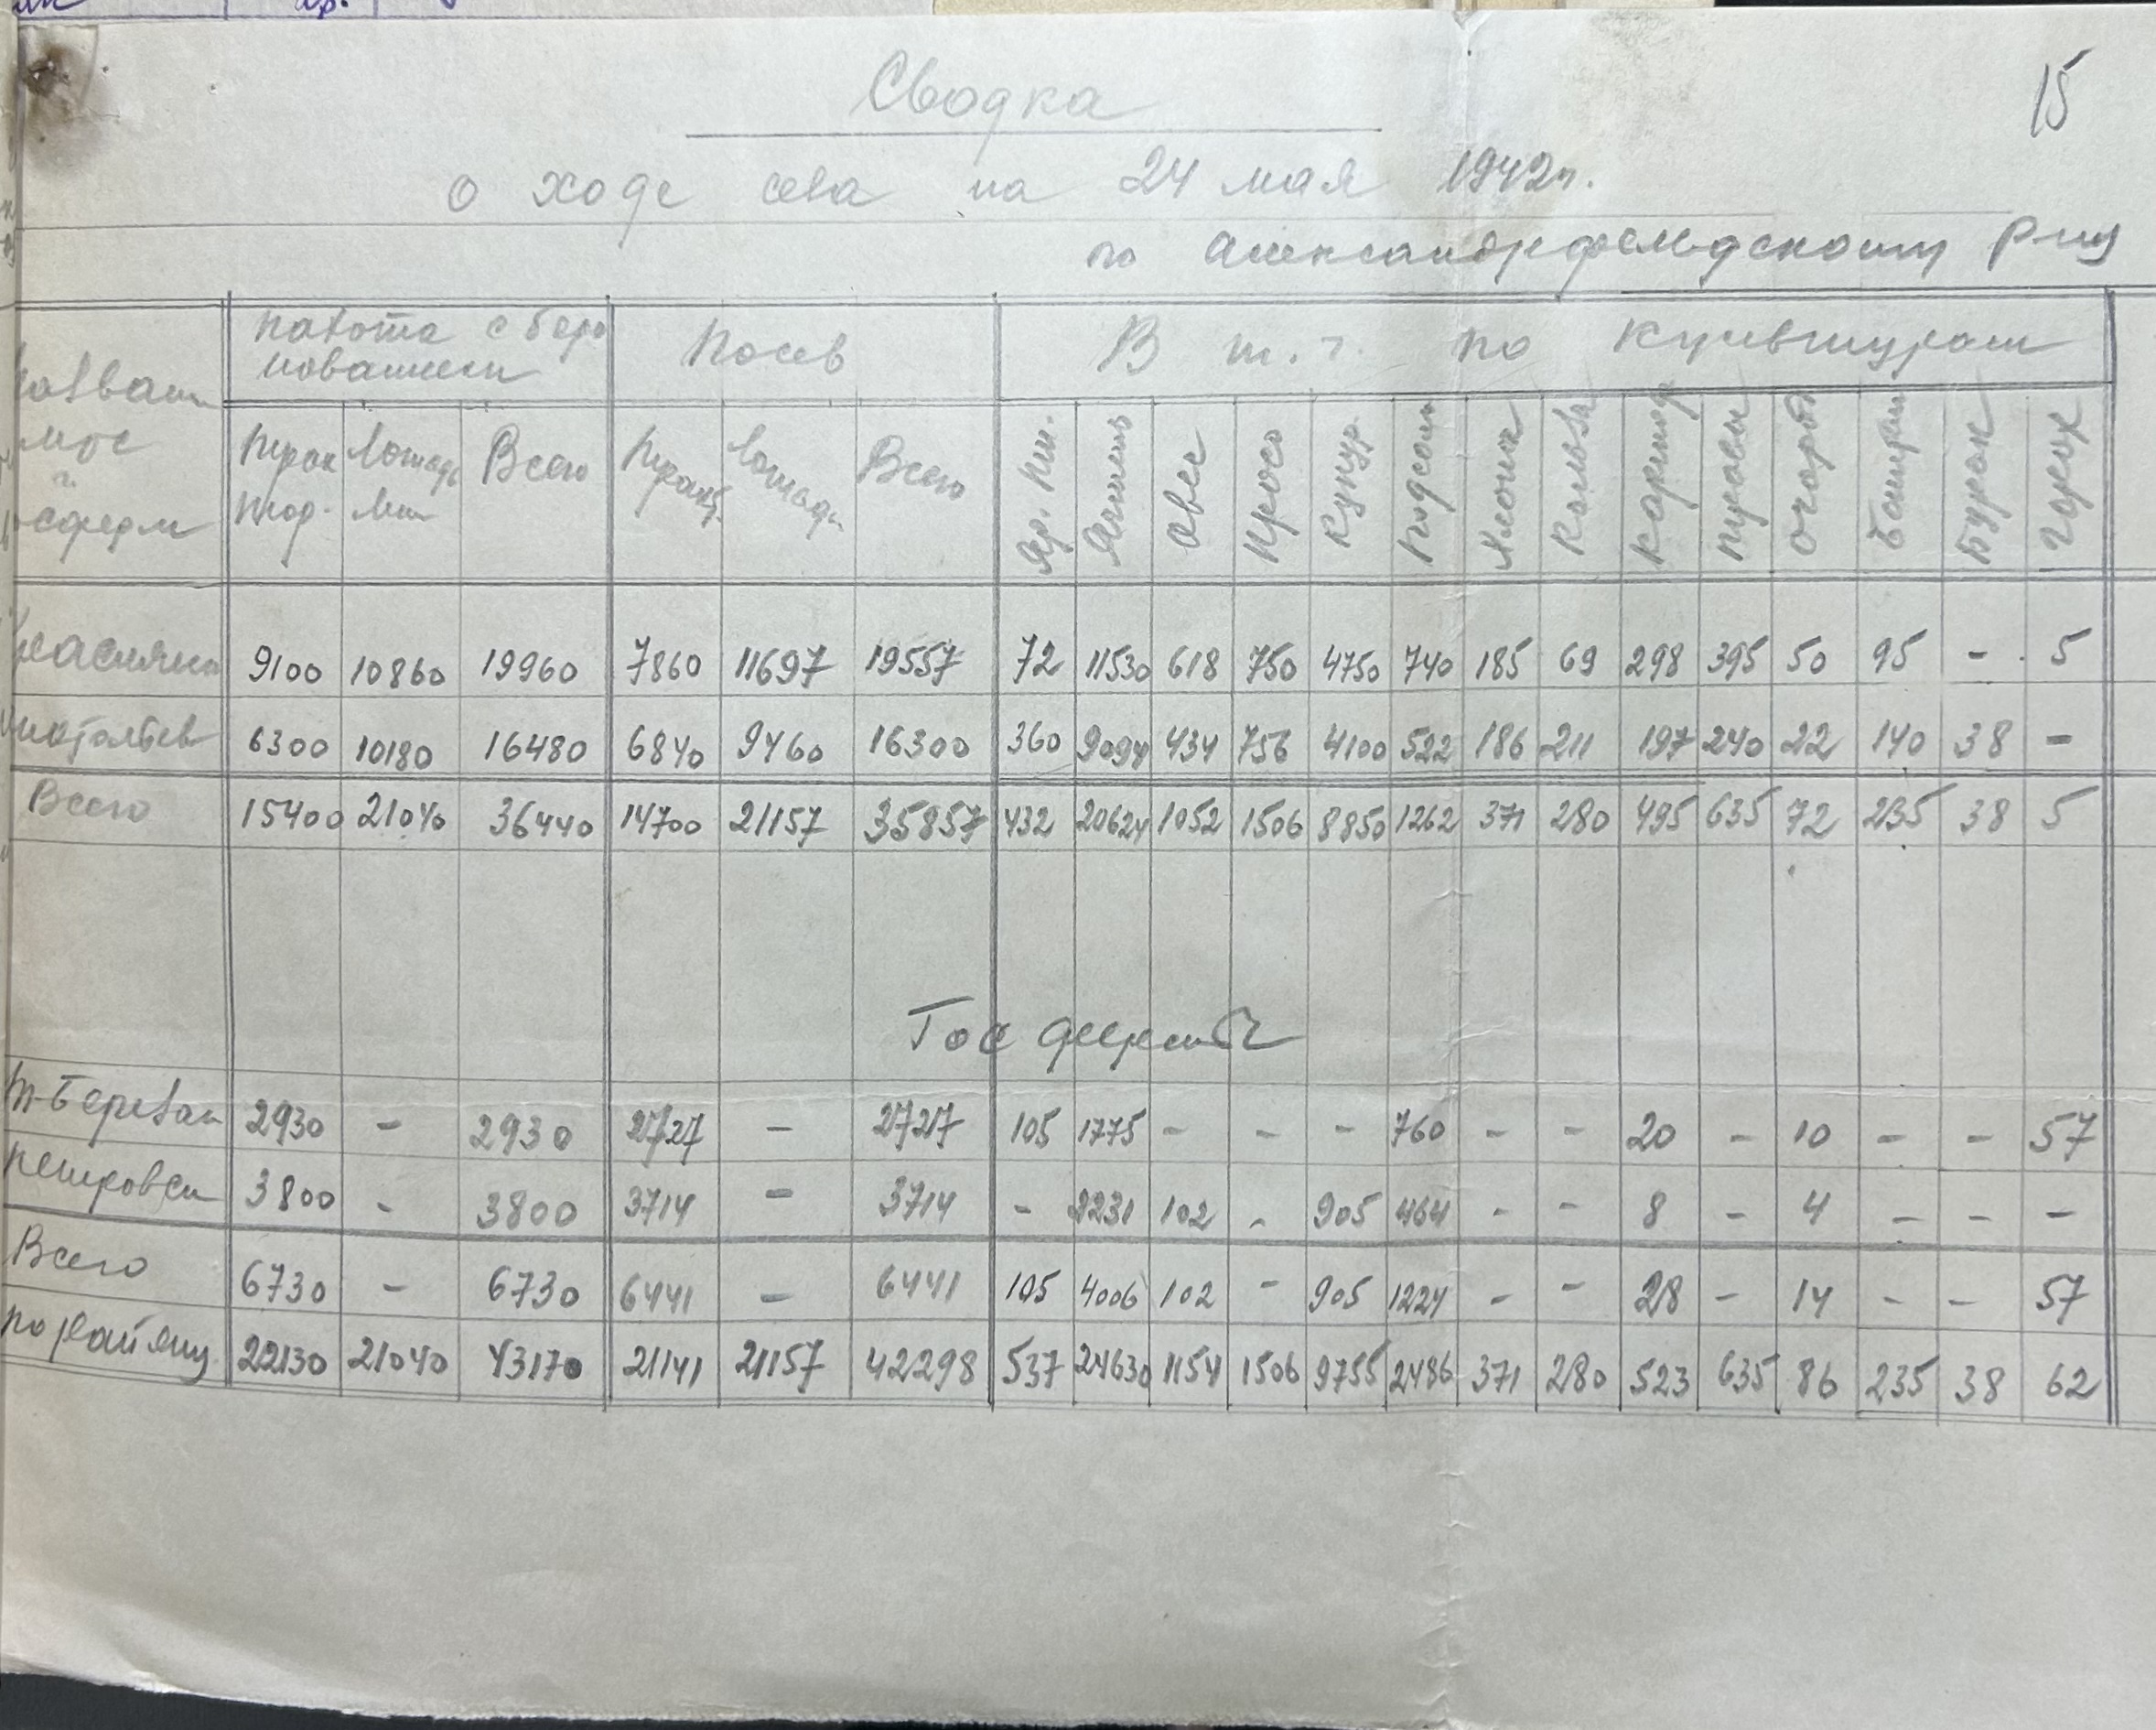 15
Сводка
о ходе сева на 24 мая 1942 г.
по Александрфельдскому р-ну
пахота с боро нованием Посев В т. ч. по культурам
назван МТС и сферм
Трак тор. Лошадь ми Всего Тракт. Лошадьм Всего Яр. Пш. Ячмень Овес Просо Кукур. Подсолн Хлопок Кольза Картоф Овощи Бурак Горох
9100 10860 19960 7860 11697 19557 72 11530 618 750 4750 740 185 69 298 395 50 95 - 5
6300 10180 16480 6840 9460 16300 360 9094 434 756 4100 522 186 211 197 240 22 140 38 -
Всего 15400 21040 36440 14700 21157 35857 432 20624 1052 1506 8850 1262 371 280 495 635 72 235 38 5
Гос фермы
Т-Березан 2930 - 2930 2727 - 2727 105 1775 - - - 760 - - 20 - 10 - - 57
Петровск 3800 - 3800 3714 - 3714 - 2231 102 - 905 464 - - 8 - 4 - - -
Всего 6730 - 6730 6441 - 6441 105 4006 102 - 905 1224 - - 28 - 14 - - 57
по району 22130 21040 43170 21141 21157 42298 537 24630 1154 1506 9755 2486 371 280 523 635 86 235 38 62